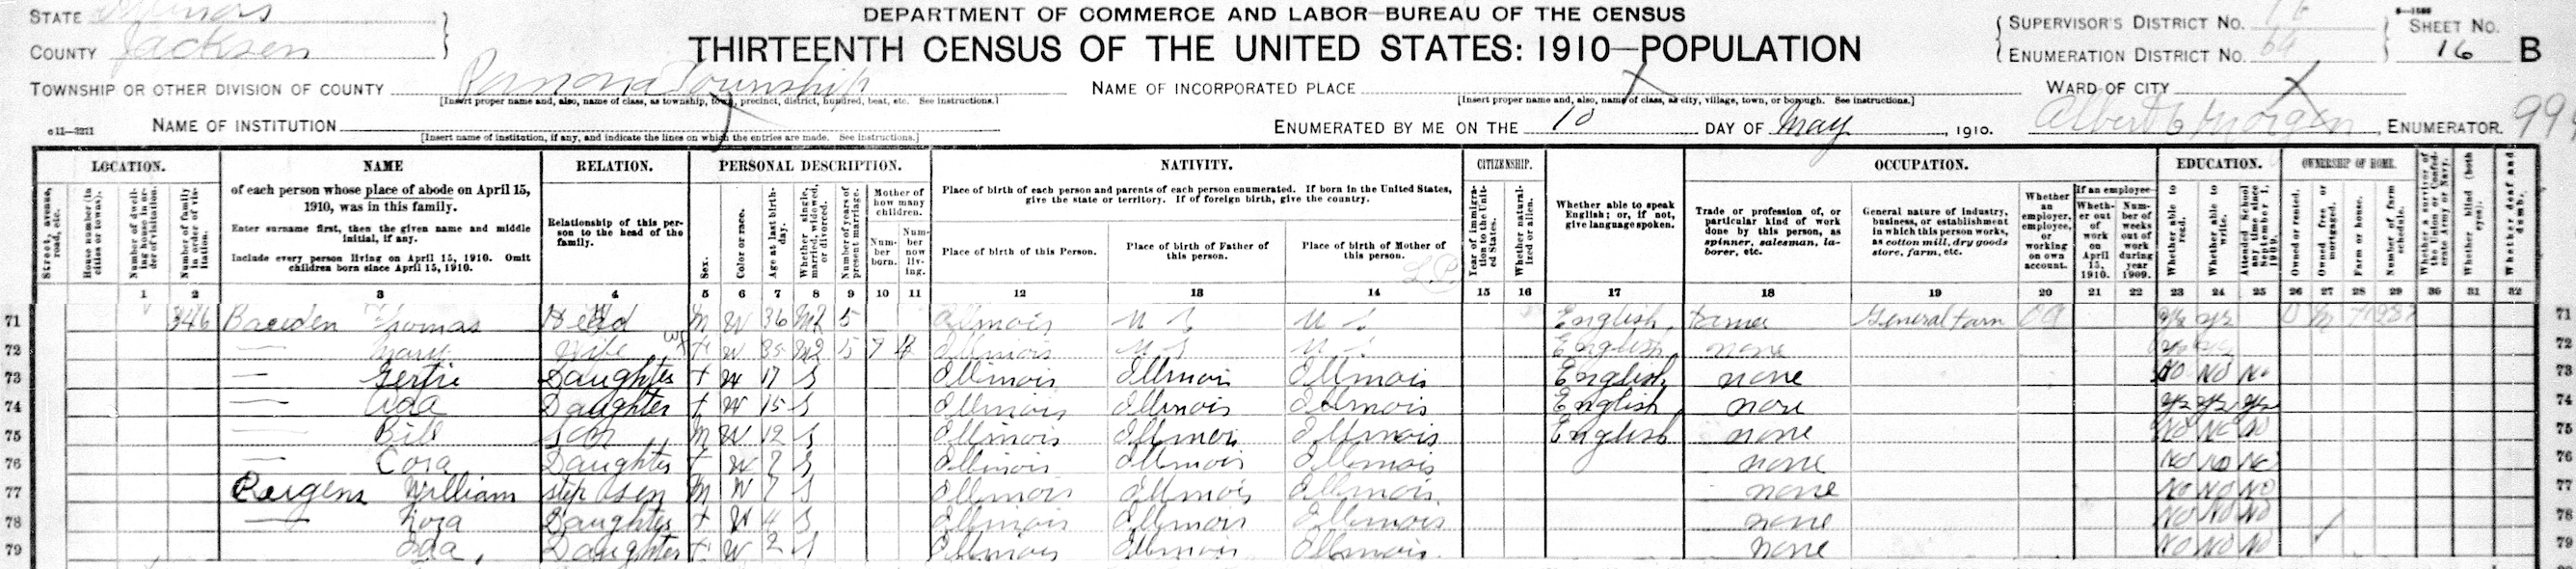 STATE Illinois
COUNTY Jackson
DEPARTMENT OF COMMERCE AND LABOR—BUREAU OF THE CENSUS
THIRTEENTH CENSUS OF THE UNITED STATES: 1910—POPULATION
SUPERVISOR'S DISTRICT NO.
ENUMERATION DISTRICT NO. 64
SHEET NO.
16 B
TOWNSHIP OR OTHER DIVISION OF COUNTY Pomona Township
[Insert proper name and, also, name of class, as township, town, precinct, district, hundred, beat, etc. See instructions.]
NAME OF INCORPORATED PLACE X
[Insert proper name and, also, name of class, as city, village, town, or borough. See instructions.]
WARD OF CITY X
c11—3271
NAME OF INSTITUTION X
[Insert name of institution, if any, and indicate the lines on which the entries are made. See instructions.]
ENUMERATED BY ME ON THE 10 DAY OF May, 1910.
Albert Morgan, ENUMERATOR. 99
LOCATION.
Street, avenue, road, etc.
House number (in cities or towns).
Number of dwelling house in order of visitation.
Number of family in order of visitation.
NAME
of each person whose place of abode on April 15, 1910, was in this family.
Enter surname first, then the given name and middle initial, if any.
Include every person living on April 15, 1910. Omit children born since April 15, 1910.
RELATION.
Relationship of this person to the head of the family.
PERSONAL DESCRIPTION.
Sex.
Color or race.
Age at last birthday.
Whether single, married, widowed, or divorced.
Number of years of present marriage.
Mother of how many children.
Number born.
Number now living.
NATIVITY.
Place of birth of each person and parents of each person enumerated. If born in the United States, give the state or territory. If of foreign birth, give the country.
Place of birth of this Person.
Place of birth of Father of this person.
Place of birth of Mother of this person.
CITIZENSHIP.
Year of immigration to the United States.
Whether naturalized or alien.
Whether able to speak English; or, if not, give language spoken.
OCCUPATION.
Trade or profession of, or particular kind of work done by this person, as spinner, salesman, laborer, etc.
General nature of industry, business, or establishment in which this person works, as cotton mill, dry goods store, farm, etc.
Whether an employer, employee, or working on own account.
If an employee—
Whether out of work on April 15, 1910.
Number of weeks out of work during year 1909.
EDUCATION.
Whether able to read.
Whether able to write.
Attended School any time since September 1, 1909.
OWNERSHIP OF HOME.
Owned or rented.
Owned free or mortgaged.
Farm or house.
Number of farm schedule.
Whether a survivor of the Union or Confederate Army or Navy.
Whether blind (both eyes).
Whether deaf and dumb.
1 2 3 4 5 6 7 8 9 10 11 12 13 14 15 16 17 18 19 20 21 22 23 24 25 26 27 28 29 30 31 32
71 346 Thomas Head M W 36 M2 5 Illinois U S U S English Farmer General Farm OA yes yes O M F 71
72 — Mary Wife F W 35 M2 5 7 Illinois U S U S English none yes yes 72
73 — Gertie Daughter F W 17 S Illinois Illinois Illinois English none No No No 73
74 — Ada Daughter F W 15 S Illinois Illinois Illinois English none yes yes yes 74
75 — Bill Son M W 12 S Illinois Illinois Illinois English none No No No 75
76 — Cora Daughter F W S Illinois Illinois Illinois none No No No 76
77 William step son M W 7 S Illinois Illinois Illinois none No No No 77
78 — Nora Daughter F W 4 S Illinois Illinois Illinois none No No No 78
79 Ida Daughter F W 2 S Illinois Illinois Illinois none No No No 79